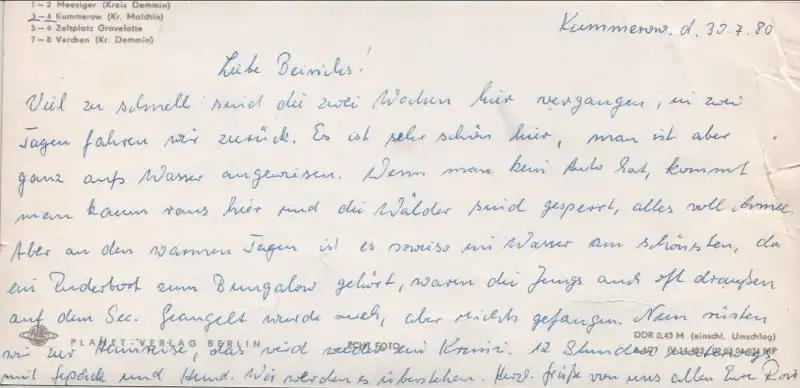 1–2 Meesiger (Kreis Demmin)
3–4 Kummerow (Kr. Malchin)
5–6 Zeltplatz Gravelotte
7–8 Verchen (Kr. Demmin)
Kummerow. d. 30.7.80
Liebe Beinichs!
Viel zu schnell sind die zwei Wochen hier vergangen, in zwei
Tagen fahren wir zurück. Es ist sehr schön hier, man ist aber
ganz aufs Wasser angewiesen. Wenn man kein Auto hat, kommt
man kaum raus hier und die Wälder sind gesperrt, alles voll Armee.
Aber an den warmen Tagen ist es sowieso im Wasser am schönsten, da
ein Ruderboot zum Bungalow gehört, waren die Jungs auch oft draußen
auf dem See. Geangelt wurde auch, aber nichts gefangen. Nun rüsten
PLANET-VERLAG BERLIN
ECHT FOTO
DDR 0,43 M (einschl. Umschlag)
wir zur Heimreise, das wird wieder ein Krimi. 12 Stunden
mit Gepäck und Hund. Wir werden es überstehen. Herzl. Grüße von uns allen Eure